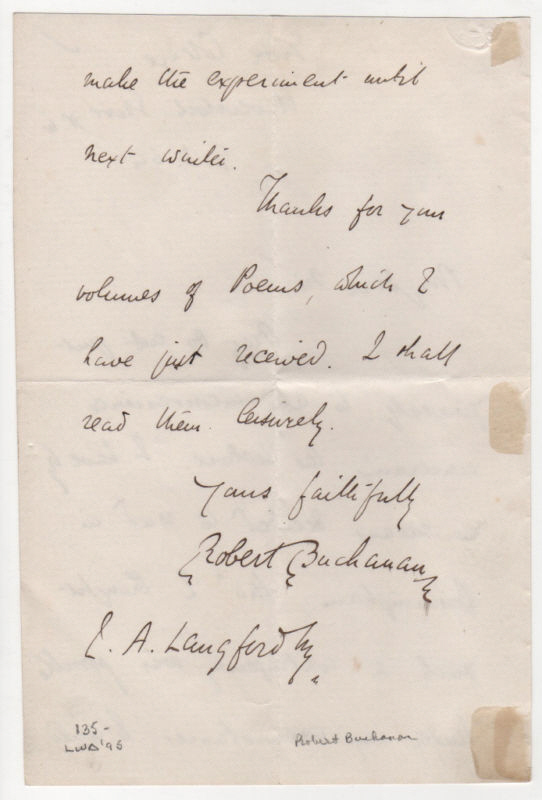 make the experiment until
next winter.
Thanks for your
volumes of Poems, which I
have just received. I shall
read them leisurely.
Yours faithfully
Robert Buchanan
A. Langford
135-
'95
Robert Buchanan